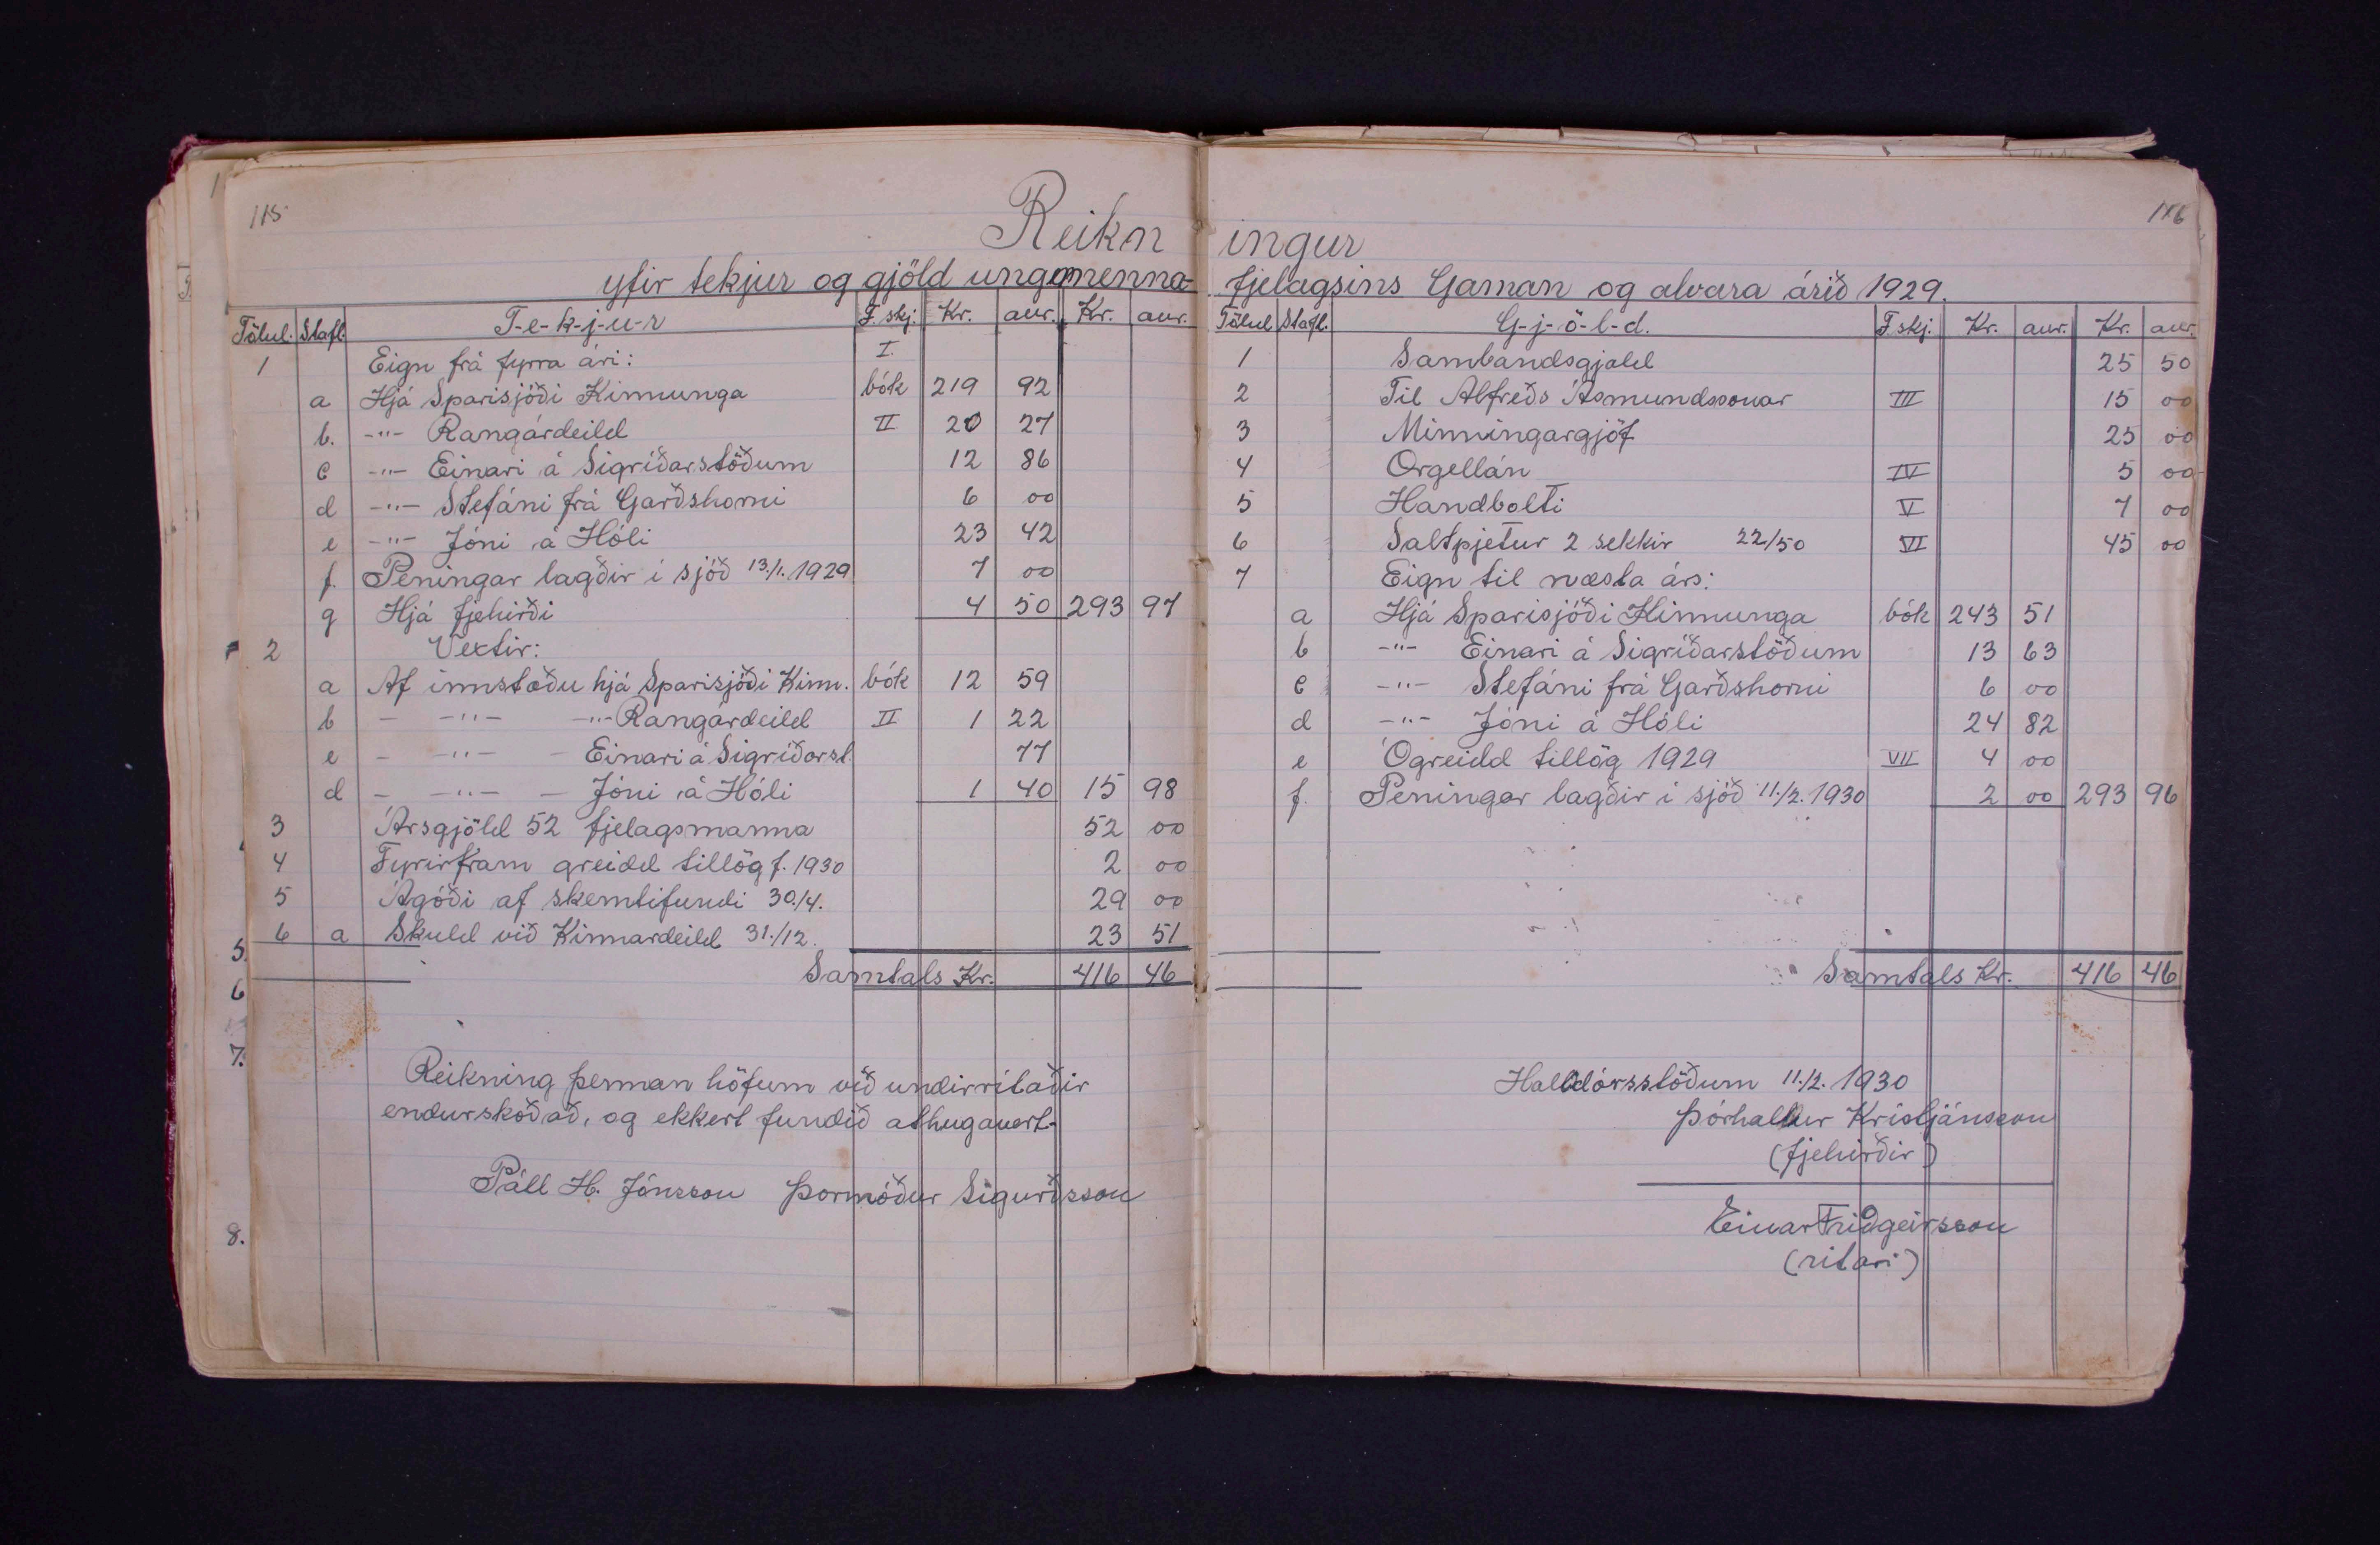 115
Reikn
yfir tekjur og gjöld ungmenna-
Tölul. Stafl. T-e-k-j-u-r F. skj. Kr. aur. Kr. aur.
1 Eign frá fyrra ári: I.
a Hjá Sparisjóði Kinnunga bók 219 92
b. -"- Rangárdeild II 20 27
c -"- Einari á Sigríðarstöðum 12 86
d -"- Stefáni frá Garðshorni 6 00
e -"- Jóni á Hóli 23 42
f. Peningar lagðir í sjóð 13./1. 1929 7 00
g Hjá fjehirði 4 50 293 97
2 Vextir:
a Af innstæðu hjá Sparisjóði Kinn. bók 12 59
b - -"- -"- Rangárdeild II 1 22
c - -"- - Einari á Sigríðarst. 77
d - -"- - Jóni á Hóli 1 40 15 98
3 Ársgjöld 52 fjelagsmanna 52 00
4 Fyrirfram greidd tillög f. 1930 2 00
5 Ágóði af skemtifundi 30./4. 29 00
6 a Skuld við Kinnardeild 31./12. 23 51
Samtals Kr. 416 46
Reikning þennan höfum við undirritaðir
endurskoðað, og ekkert fundið athugavert.
Páll H. Jónsson Þormóður Sigurðsson
5.
6
7.
8.
116
ingur
fjelagsins Gaman og alvara árið 1929.
Tölul Stafl. G-j-ö-l-d. F skj. Kr. aur. Kr. aur.
1 Sambandsgjald 25 50
2 Til Alfreðs Ásmundssonar III 15 00
3 Minningargjöf 25 00
4 Orgellán IV 5 00
5 Handbolti V 7 00
6 Saltpjetur 2 sekkir 22/50 VI 45 00
7 Eign til næsta árs:
a Hjá Sparisjóði Kinnunga bók 243 51
b -"- Einari á Sigríðarstöðum 13 63
c -"- Stefáni frá Garðshorni 6 00
d -"- Jóni á Hóli 24 82
e Ógreidd tillög 1929 VII 4 00
f. Peningar lagðir í sjóð 11./2. 1930 2 00 293 96
Samtals Kr. 416 46
Halldórsstöðum 11./2. 1930
Þórhallur Kristjánsson
(fjehirðir)
Einar Friðgeirsson
(ritari)